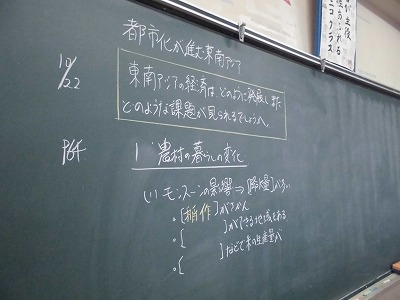 都市化が進む東南アジア
10/22
東南アジアの経済は、どのように発展し、また
どのような課題が見られるでしょうか。
P64
1 農村の暮らしの変化
(1) モンスーンの影響⇒[降水量]が多い
・[稲作]がさかん
・[ ]ができる地域もある
・[ ]などで米の生産量が
・[